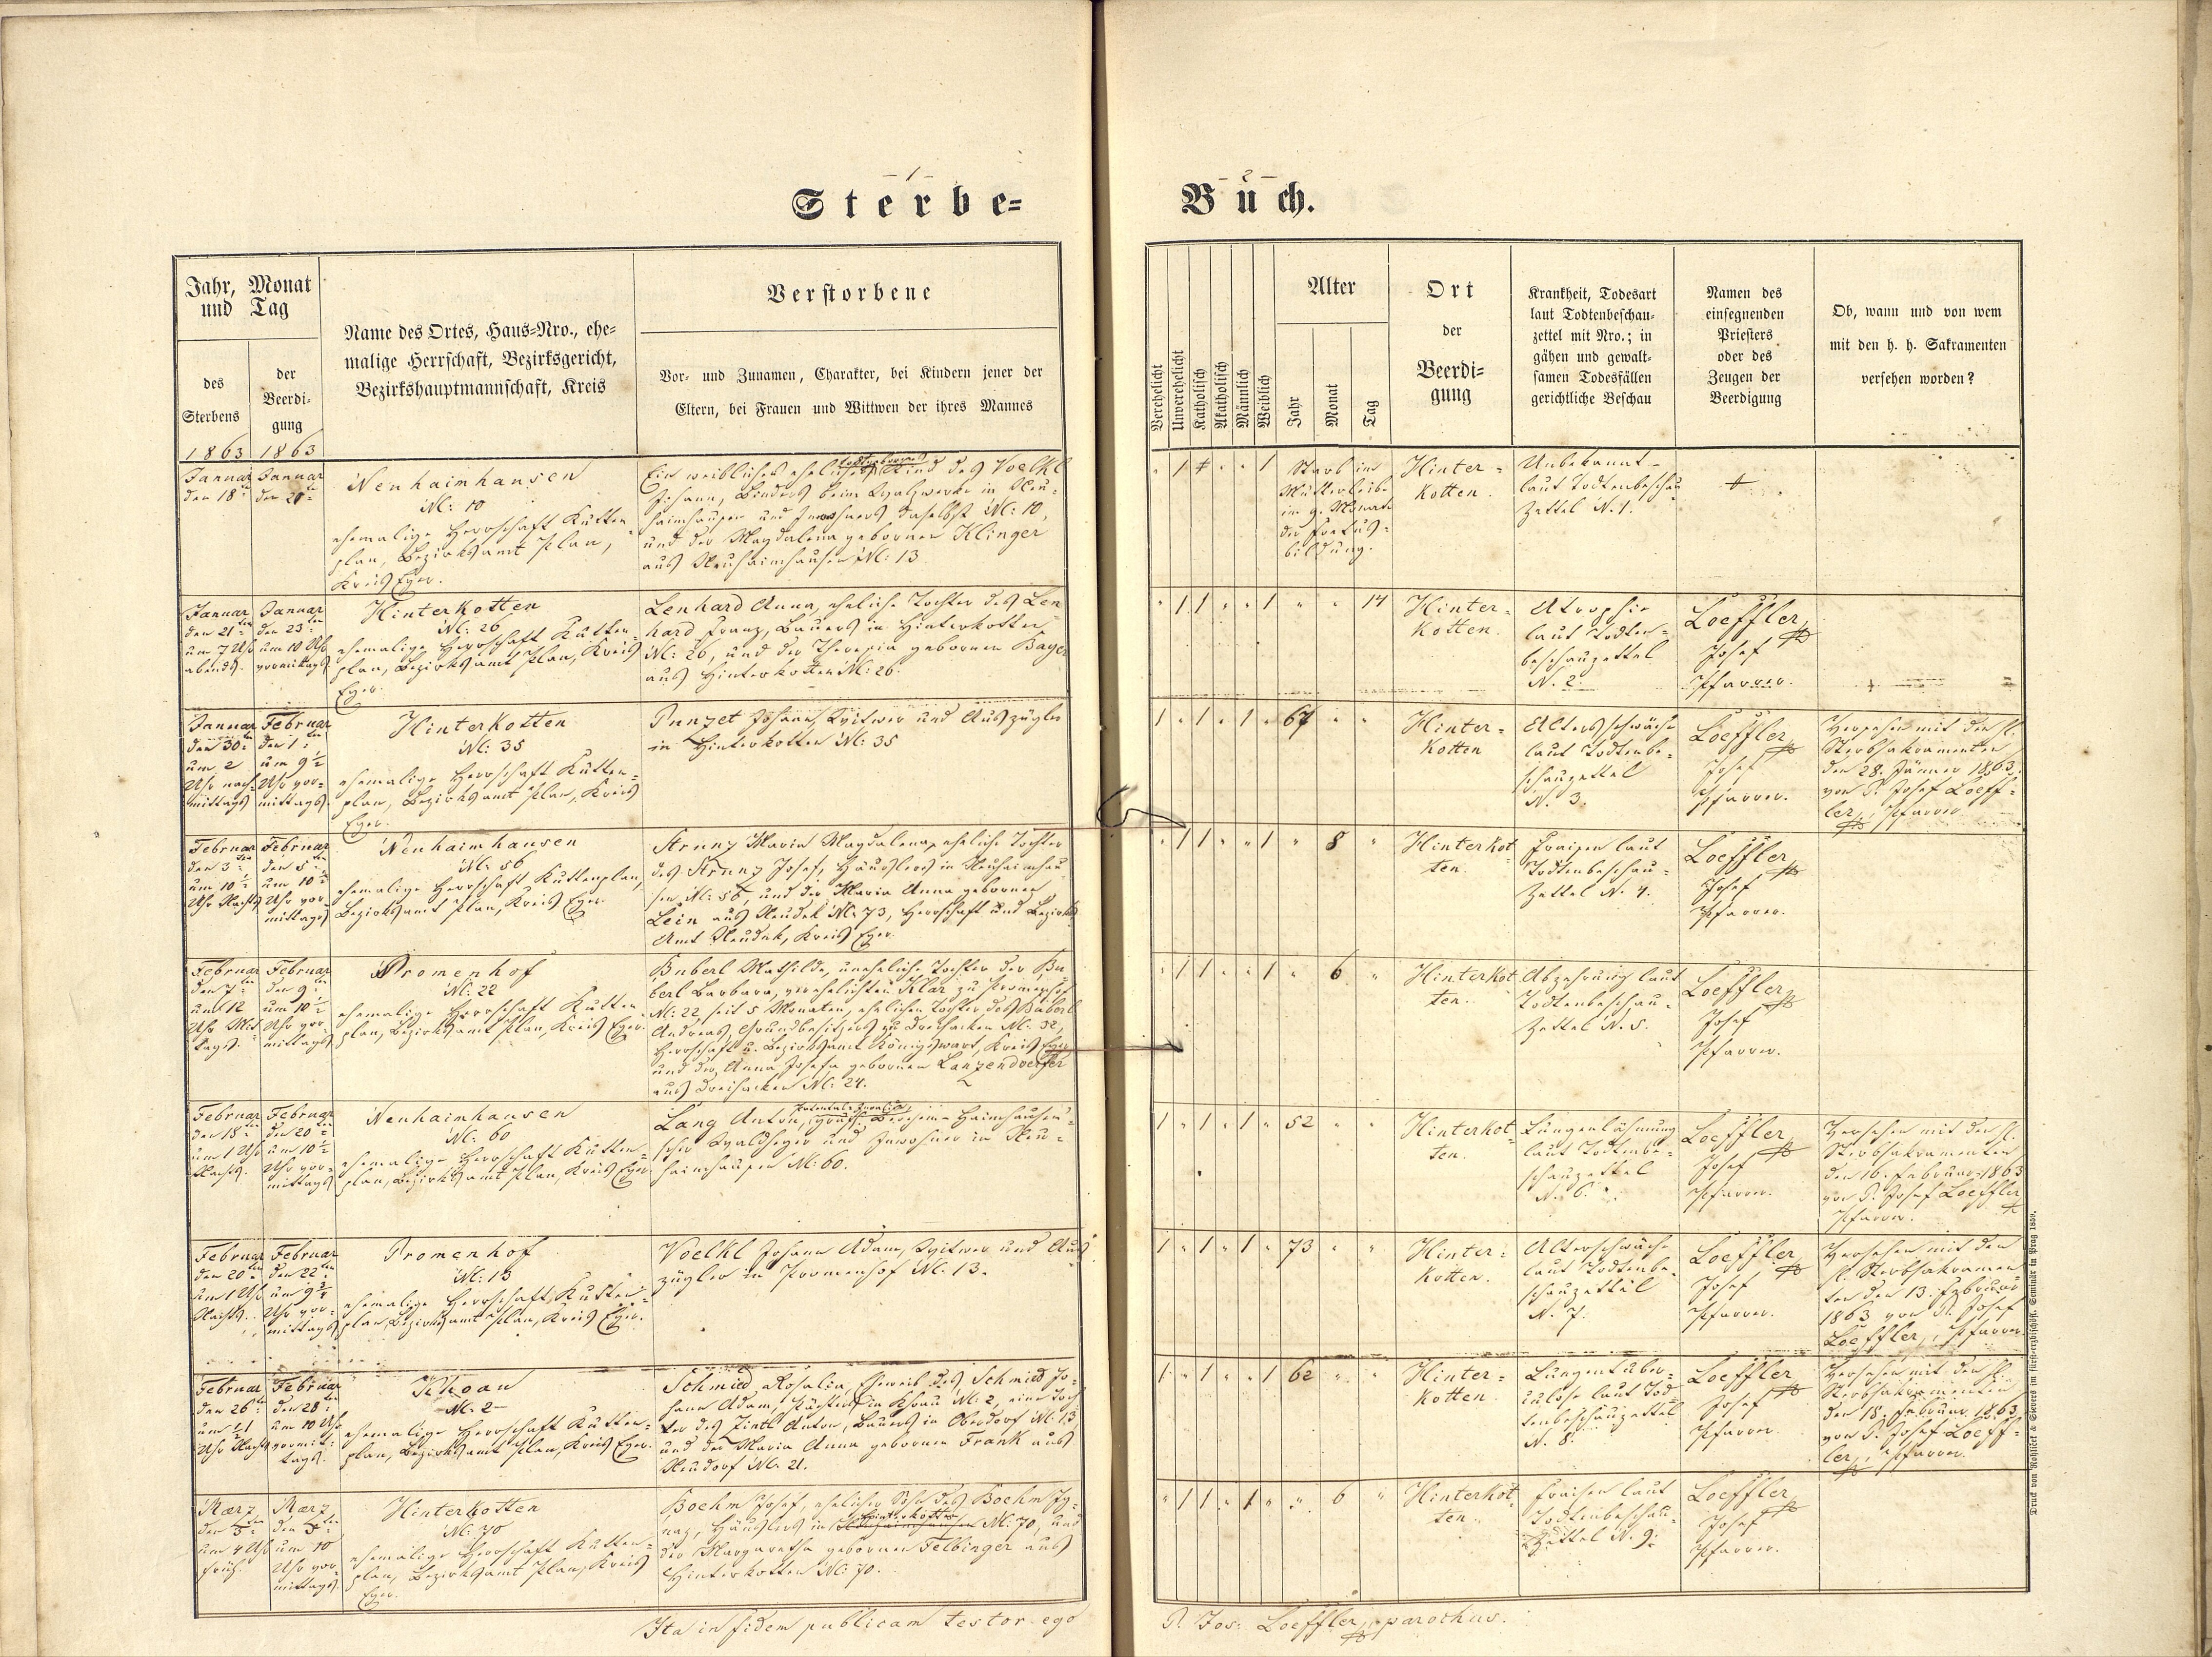 - 1 -
Sterbe=
Jahr, Monat
und Tag
des
Sterbens
1863
der
Beerdi-
gung
1863
Name des Ortes, Haus=Nro., ehe=
malige Herrschaft, Bezirksgericht,
Bezirkshauptmannschaft, Kreis
Verstorbene
Vor- und Zunamen, Charakter, bei Kindern jener der
Eltern, bei Frauen und Wittwen der ihres Mannes
Januar
den 18ten
Januar
den 20ten
Neuhaimhausen
N: 10
ehemalige Herrschaft Kutten-
plan, Bezirksamt Plan,
Kreis Eger.
todtgeborenes
Ein weibliches eheliches Kind des Voelkl
Johann, Binders beim Walzwerke in Neu-
haimhausen und Inwohners daselbst N: 10,
und der Magdalena gebornen Klinger
aus Neuhaimhausen N: 13
Januar
den 21ten
um 7 Uhr
abends.
Januar
den 23ten
um 10 Uhr
vormittags
Hinterkotten
N: 26
ehemalige Herrschaft Kutten-
plan, Bezirksamt Plan, Kreis
Eger.
Lenhard Anna, eheliche Tochter des Len
hard Franz, Bauers in Hinterkotten
N: 26, und der Theresia gebornen
aus Hinterkotten N: 26.
Januar
den 30ten
um 2
Uhr nach-
mittags
Februar
den 1ten
um 9½
Uhr vor-
mittags.
Hinterkotten
N: 35
ehemalige Herrschaft Kutten=
plan, Bezirksamt Plan, Kreis
Eger.
Punzet Johann, Witwer und Auszügler
in Hinterkotten N: 35
Februar
den 3ten
um 10½
Uhr Nachts
Februar
den 5ten
um 10½
Uhr vor-
mittags
Neuhaimhausen
N: 56
ehemalige Herrschaft Kuttenplan,
Bezirksamt Plan, Kreis Eger.
Strunz Maria Magdalena, eheliche Tochter
des Strunz Josef, Häuslers in Neuhaimhau
sen N: 56, und der Maria Anna gebornen
Lein aus Neudek N: 73, Herrschaft und Bezirks
Amt Neudek, Kreis Eger.
Februar
den 7ten
um 12
Uhr Mit
tags.
Februar
den 9ten
um 10½
Uhr vor-
mittags
Promenhof
N: 22
ehemalige Herrschaft Kutten
plan, Bezirksamt Plan, Kreis Eger.
Buberl Mathilde, uneheliche Tochter der Bu-
berl Barbara, verehelichten Klar zu Promenhof
N: 22, seit 5 Monaten, ehelichen Tochter des Buberl
Andreas, Grundbesitzers zu Dreihacken N: 32,
Herrschaft u. Bezirksamt Königswart, Kreis Eger
und der Anna Josefa gebornen Lanzendoerfer
aus Dreihacken N: 24.
Februar
den 18ten
um 1 Uhr
Nachts.
Februar
den 20ten
um 10½
Uhr vor-
mittags
Neuhaimhausen
N: 60
ehemalige Herrschaft Kutten=
plan, Bezirksamt Plan, Kreis Eger.
Lang Anton, gräfl. Berchem-Haimhausen'
scher Waldheger und Inwohner in Neu-
haimhausen N: 60.
Februar
den 20ten
um 1 Uhr
Nachts.
Februar
den 22ten
um 9¾
Uhr vor-
mittags
Promenhof
N: 13
ehemalige Herrschaft Kutten=
plan, Bezirksamt Plan, Kreis Eger.
Voelkl Johann Adam, Witwer und Aus
zügler in Promenhof N: 13.
Februar
den 26ten
um ½1
Uhr Nachts
Februar
den 28ten
um 10 Uhr
vormit-
tags.
Khoau
N: 2
ehemalige Herrschaft Kutten=
plan, Bezirksamt Plan, Kreis Eger.
Schmied Rosalia, Eheweib des Schmied Jo-
hann Adam, in Khoau N: 2, eine Toch
ter des Zintl Anton, Bauers in Oberdorf N: 13
und der Maria Anna gebornen Frank aus
Neudorf N: 21.
Maerz
den 3ten
um 4 Uhr
früh.
Maerz
den 5ten
um 10
Uhr vor-
mittags.
Hinterkotten
N: 70
ehemalige Herrschaft Kutten=
plan, Bezirksamt Plan, Kreis
Eger.
Boehm Josef, ehelicher Sohn des Boehm Ig-
naz, Häuslers in Hinterkotten N: 70, und
der Margaretha gebornen Felbinger aus
Hinterkotten N: 70.
Ita in fidem publicam testor ego
- 2 -
Buch.
Verehelicht
Unverehelicht
Katholisch
Akatholisch
Männlich
Weiblich
Alter
Jahr
Monat
Tag
Ort
der
Beerdi=
gung
Krankheit, Todesart
laut Todtenbeschau=
zettel mit Nro.; in
gähen und gewalt=
samen Todesfällen
gerichtliche Beschau
Namen des
einsegnenden
Priesters
oder des
Zeugen der
Beerdigung
Ob, wann und von wem
mit den h. h. Sakramenten
versehen worden?
" 1 + " " 1
Starb im
Mutterleibe
im 9. Monate
der Foetus-
bildung.
Hinter=
kotten.
Unbekannt
laut Todtenbeschau
Zettel N. 1.
+
" 1 1 " " 1 " " 14
Hinter=
kotten.
Atrophie
laut Todten=
beschauzettel
N. 2.
Loeffler
Josef
Pfarrer.
1 " 1 " 1 " 67 " "
Hinter=
kotten
Altersschwäche
laut Todtenbe-
schauzettel
N. 3.
Loeffler
Josef
Pfarrer.
Versehen mit den hl.
Sterbsakramenten
den 28. Jänner 1863.
von P. Josef Loeff=
ler, Pfarrer
" 1 1 " " 1 " 8 "
Hinterkot
ten.
Fraisen laut
Todtenbeschau=
Zettel N. 4.
Loeffler
Josef
Pfarrer.
" 1 1 " " 1 " 6 "
Hinterkot
ten.
Abzehrung laut
Todtenbeschau-
Zettel N. 5.
Loeffler
Josef
Pfarrer.
1 " 1 " 1 " 52 " "
Hinterkot-
ten.
Lungenlähmung
laut Todtenbe-
schauzettel
N. 6.
Loeffler
Josef
Pfarrer.
Versehen mit den hl.
Sterbsakramenten
den 16. Februar 1863
von P. Josef Loeffler
Pfarrer.
1 " 1 " 1 " 73 " "
Hinter=
kotten.
Altersschwäche
laut Todtenbe-
schauzettel
N. 7.
Loeffler
Josef
Pfarrer.
Versehen mit den
hl. Sterbsakramen
ten den 13. Februar
1863 von P. Josef
Loeffler, Pfarrer.
1 " 1 " " 1 62 " "
Hinter=
kotten.
Lungentuber-
culose laut Tod=
tenbeschauzettel
N. 8.
Loeffler
Josef
Pfarrer.
Versehen mit den hl.
Sterbsakramenten
den 18. Februar 1863
von P. Josef Loeff=
ler, Pfarrer.
" 1 1 " 1 " " 6 "
Hinterkot
ten.
Fraisen laut
Todtenbeschau-
Zettel N. 9.
Loeffler
Josef
Pfarrer.
P. Jos. Loeffler, parochus.
Druck von Rohliček & Sievers im fürst-erzbischöfl. Seminär in Prag 1859.